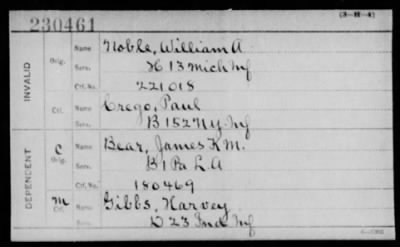 230461
(3-H-4)
INVALID
Orig.
Name Noble, William A
Serv. H 13 Mich Inf
Ctf. No. 221018
Ctf.
Name Crego, Paul
Serv. B 152 N.Y. Inf
DEPENDENT
C
Orig.
Name Bear, James K M.
Serv. B 1 Pa L. A
Ctf. No. 180469
m
Ctf.
Name Gibbs, Harvey
Serv. D 23 Ind Inf